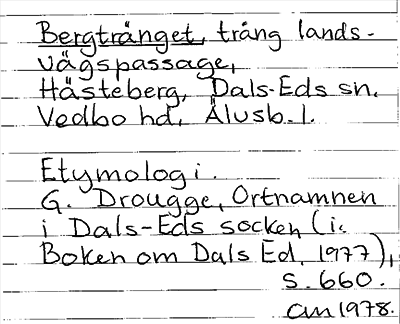 Bergtrånget, trång lands-
vägspassage,
Hästeberg, Dals-Eds sn.
Vedbo hd, Älvsb. l.
Etymologi.
G. Drougge, Ortnamnen
i Dals-Eds socken (i:
Boken om Dals Ed, 1977),
s. 660.
am 1978.